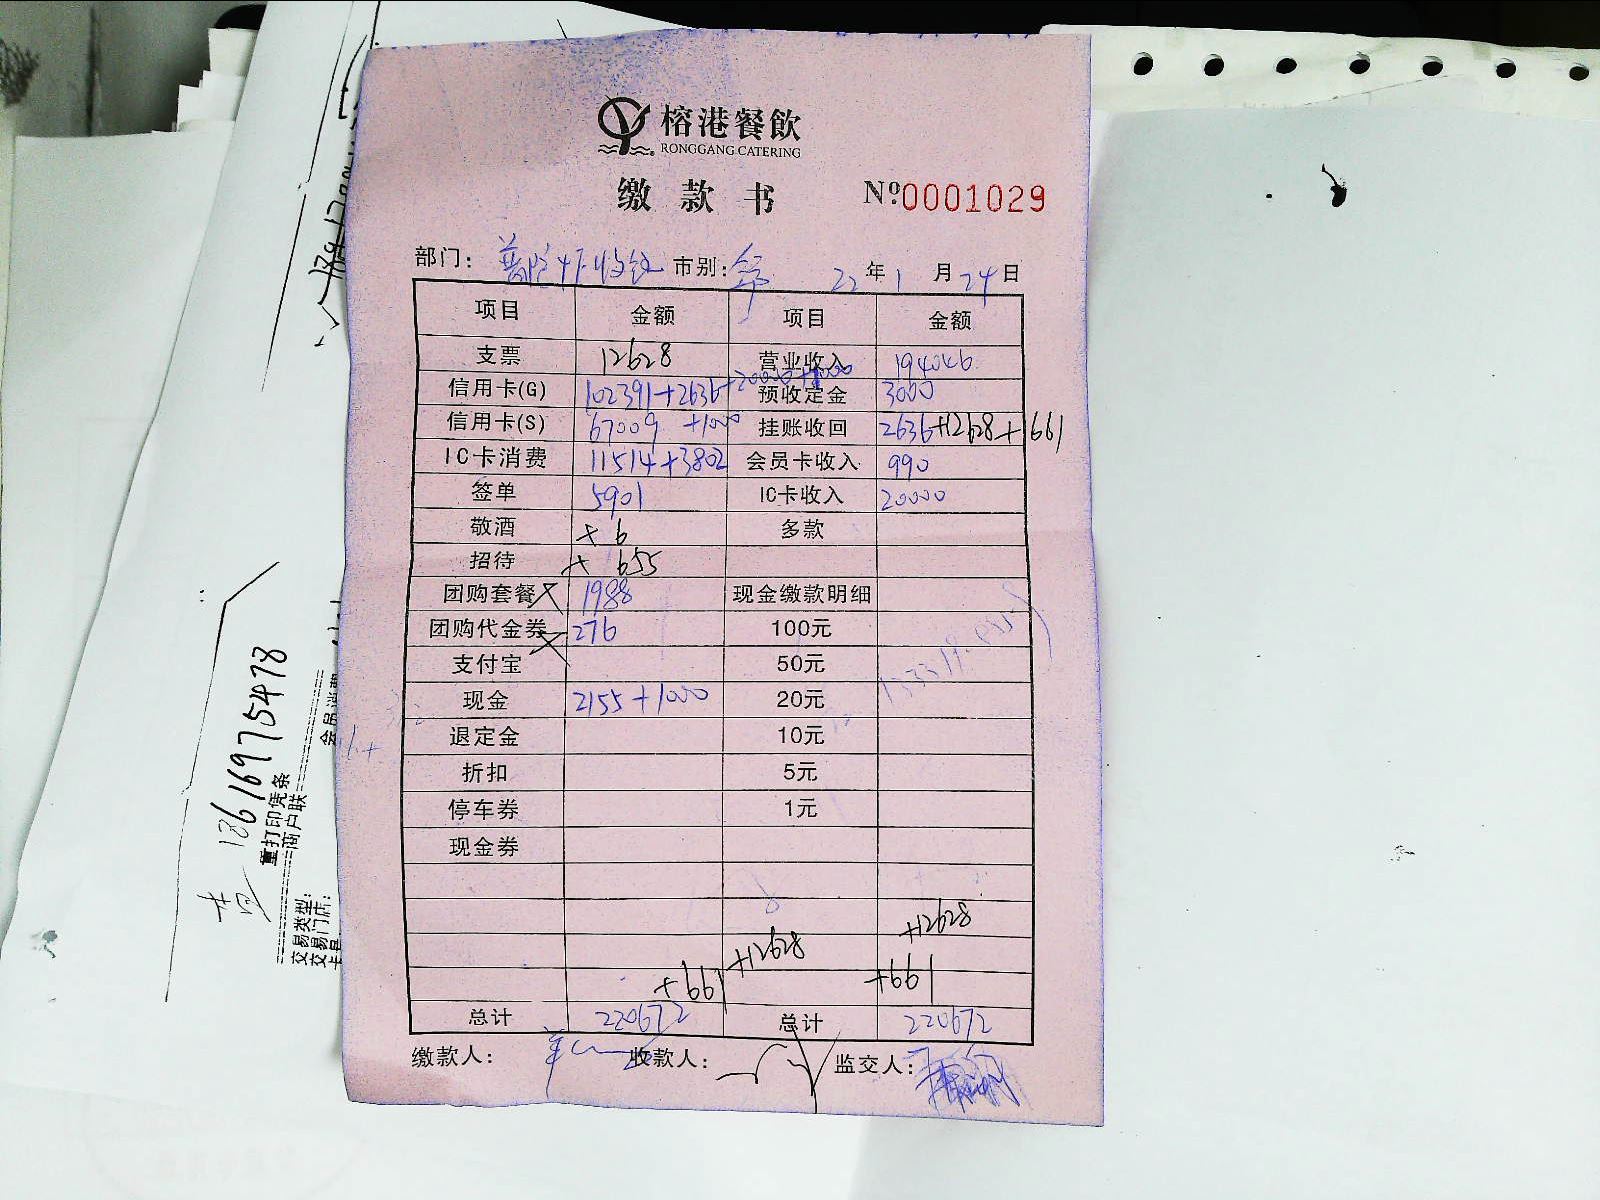 榕港餐飲
RONGGANG CATERING
缴款书 Nº0001029
部门: 市别: 22年1月24日
项目 金额 项目 金额
支票 12628 营业收入 194046
信用卡(G) 102391+2636+20000+1000 预收定金 3000
信用卡(S) 67009 +1000 挂账收回 2636+12628+661
IC卡消费 11514+3802 会员卡收入 990
签单 5901 IC卡收入 20000
敬酒 + 6 多款
招待 + 655
团购套餐 1988 现金缴款明细
团购代金券 276 100元
支付宝 50元
现金 2155+1000 20元
退定金 10元
折扣 5元
停车券 1元
现金券
+12628
+12628
+661 +661
总计 220672 总计 220672
缴款人: 收款人: 监交人:
18616975478
重打印凭条
商户联
交易类型:
交易门店: